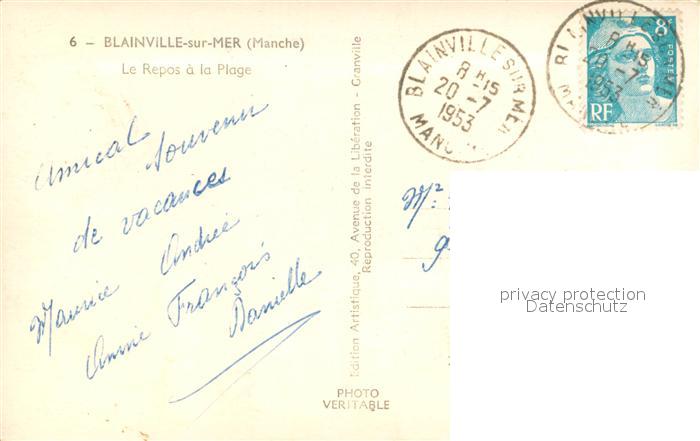 6 - BLAINVILLE-sur-MER (Manche)
Le Repos à la Plage
Amical souvenir
de vacances
Maurice Andrée
Annie François
Danielle
Edition Artistique, 40, Avenue de la Libération - Granville
Reproduction interdite
PHOTO
VERITABLE
BLAINVILLE SUR MER
8 H 15
20 -7
1953
MANCHE
8F
POSTES
RF
8 H 15
20 -7
1953
Mr
privacy protection
Datenschutz